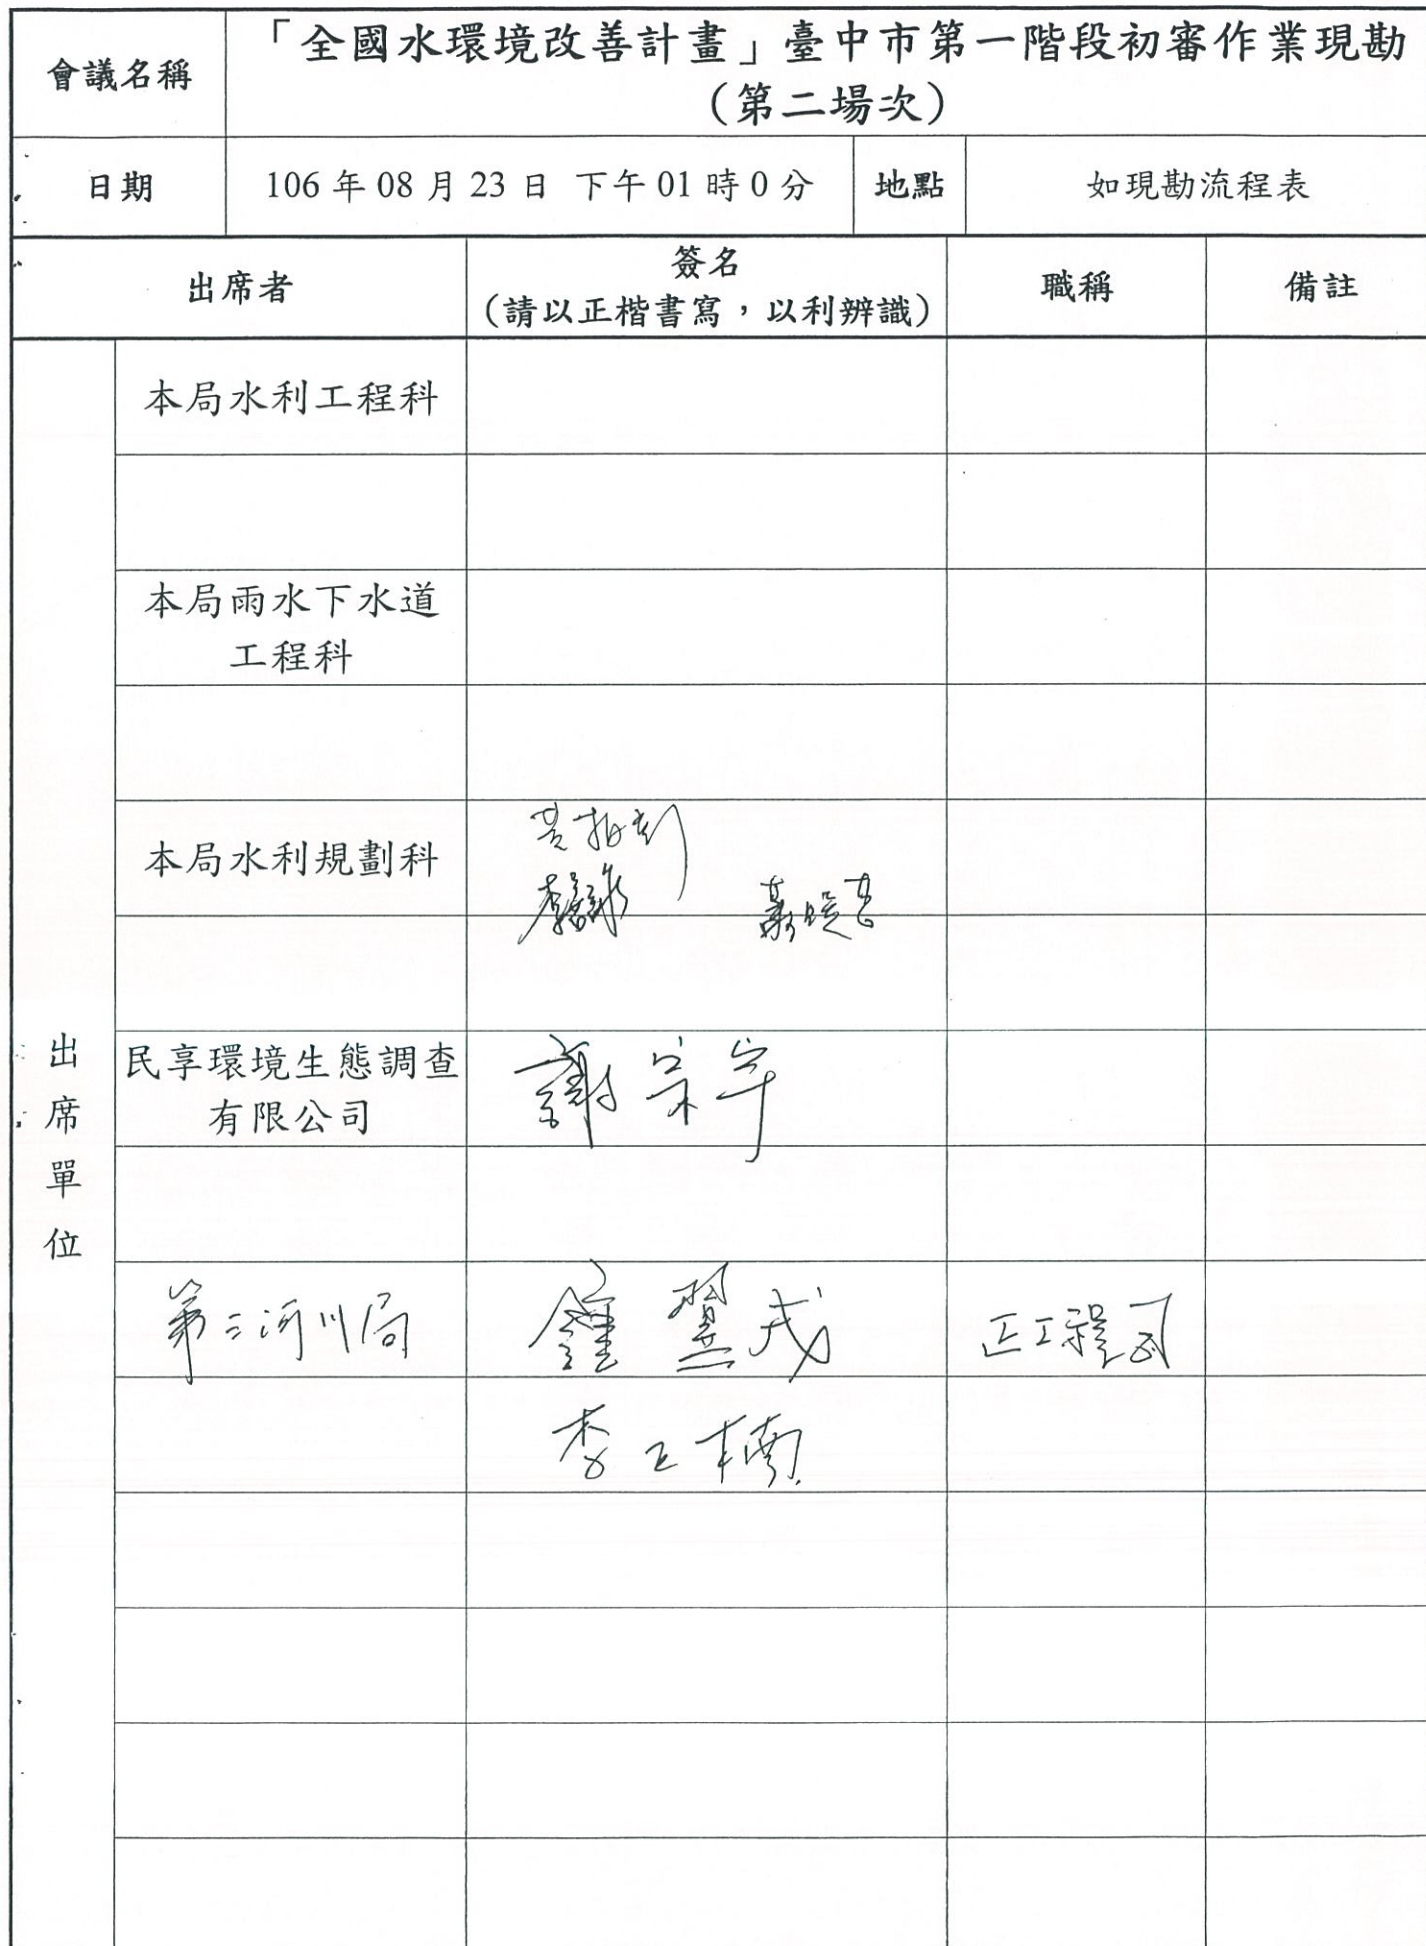 會議名稱
「全國水環境改善計畫」臺中市第一階段初審作業現勘
（第二場次）
日期
106 年 08 月 23 日 下午 01 時 0 分
地點
如現勘流程表
出席者
簽名
（請以正楷書寫，以利辨識）
職稱
備註
出席單位
本局水利工程科
本局雨水下水道
工程科
本局水利規劃科
民享環境生態調查
有限公司
謝宗宇
第三河川局
鐘翼戎
正工程司
李正楠